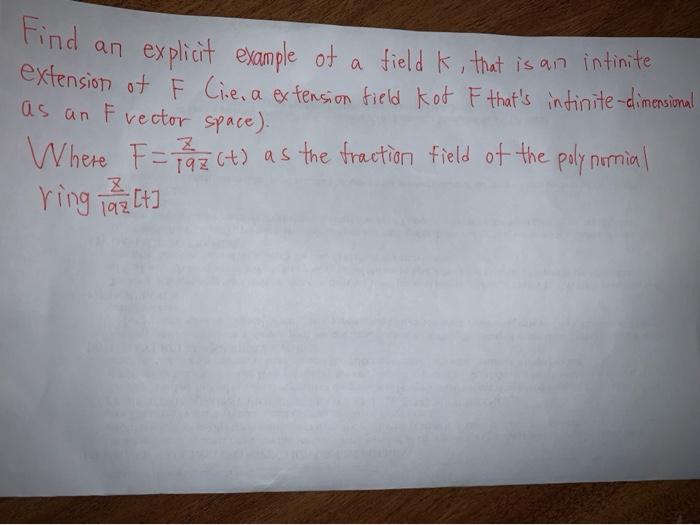 Find an explicit example of a field K, that is an infinite
extension of F (i.e. a extension field K of F that's infinite-dimensional
as an F vector space).
Where F = Z/19Z (t) as the fraction field of the polynomial
ring Z/19Z [t]